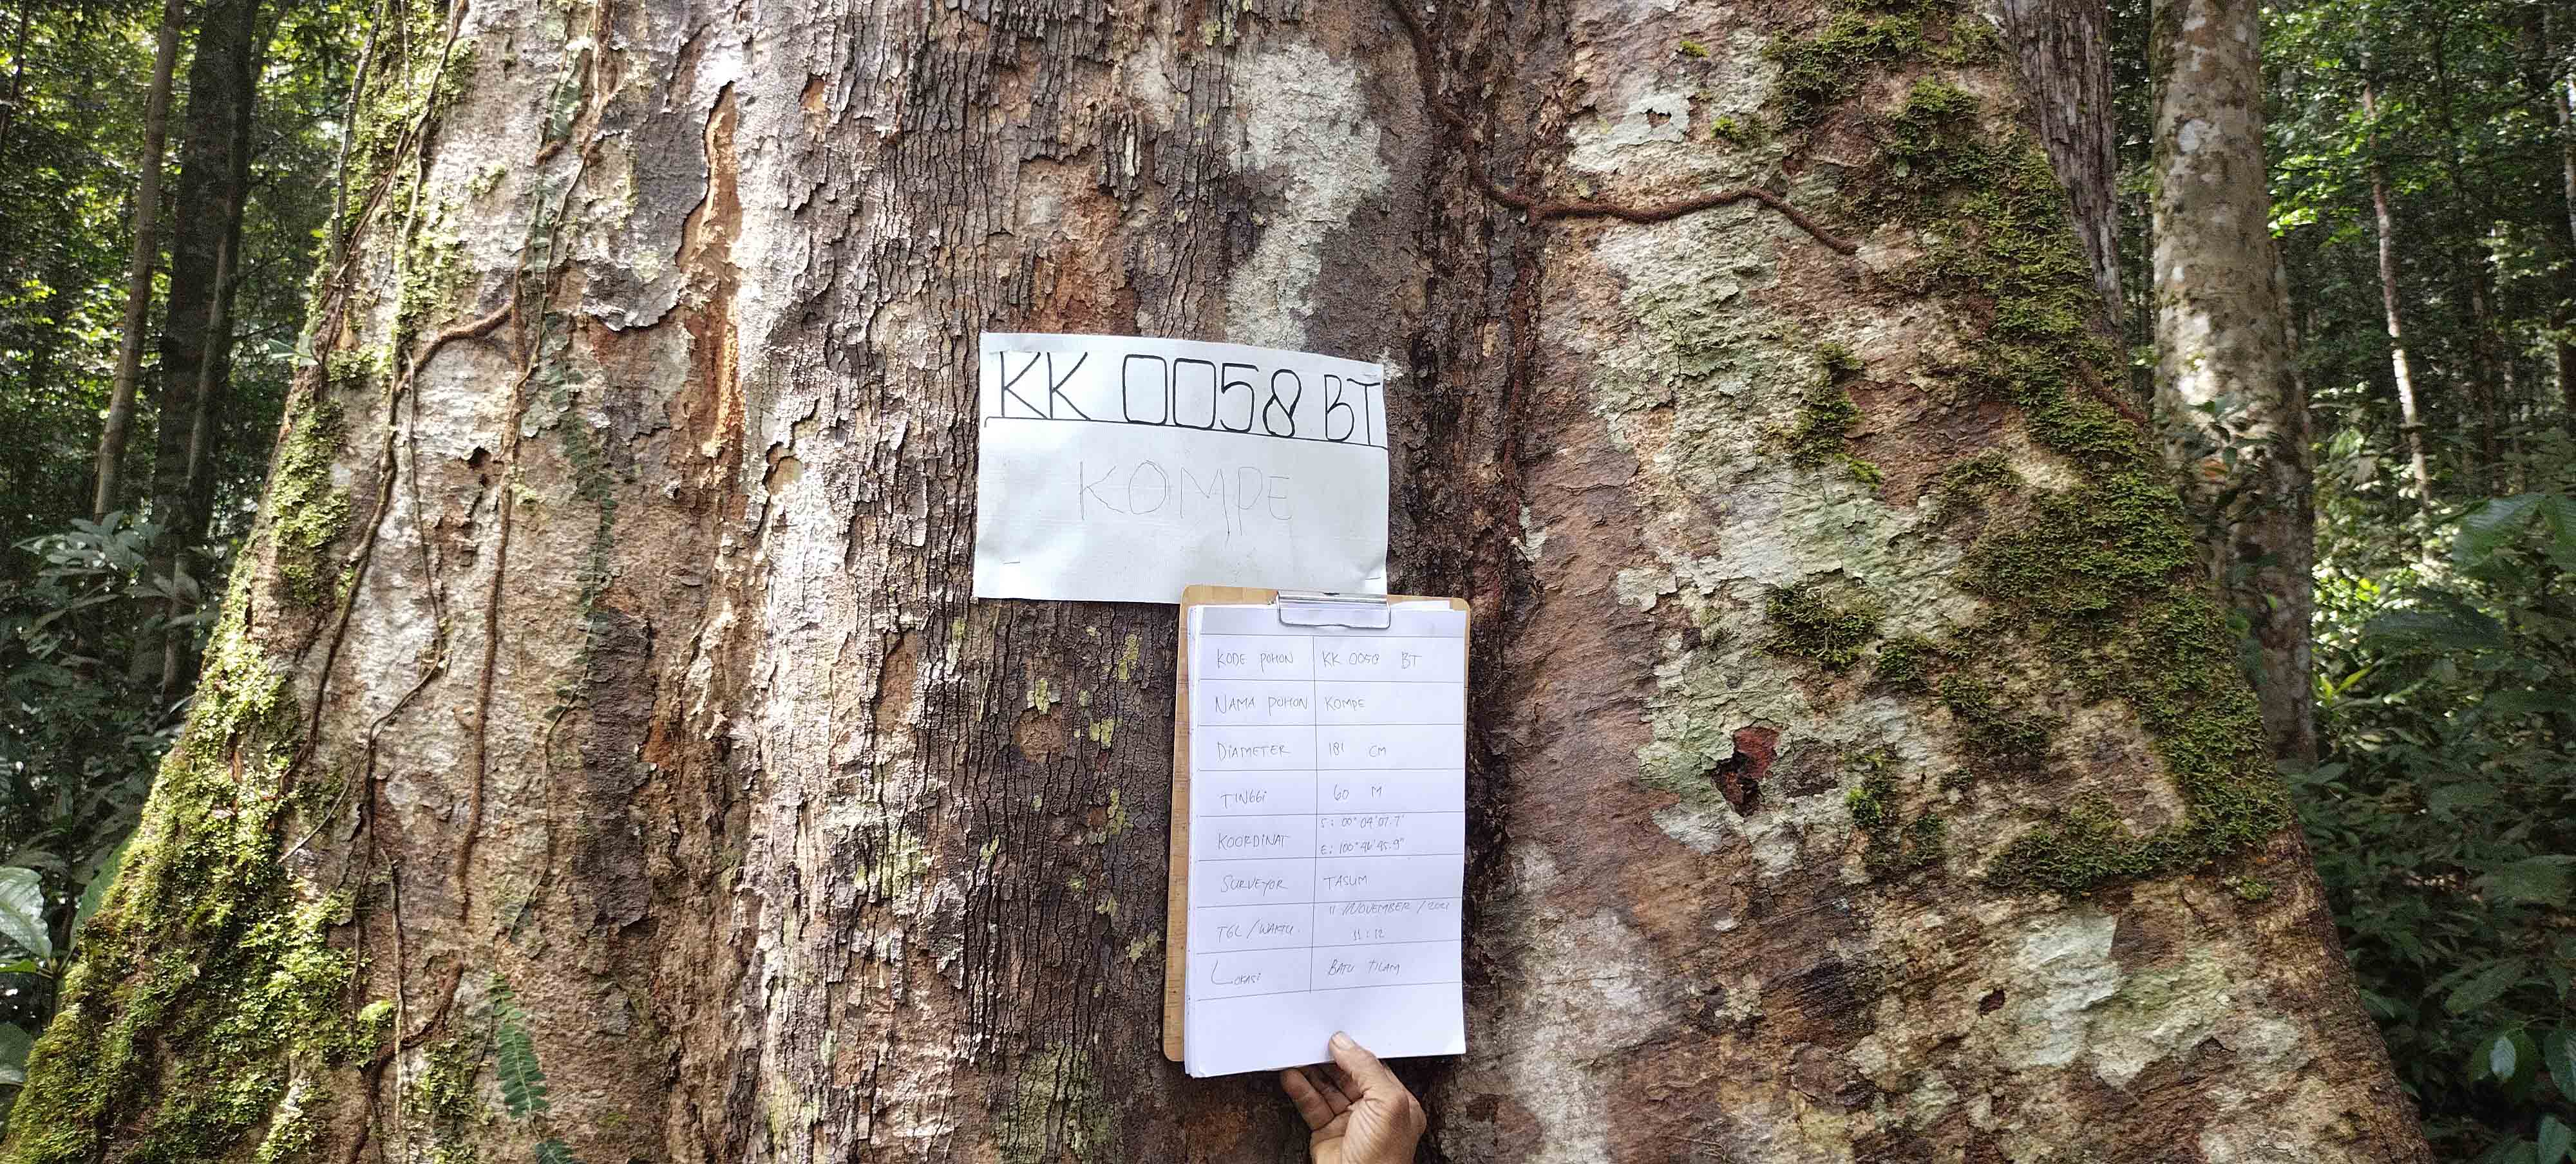 KK 0058 BT
KOMPE
KODE POHON KK 0058 BT
NAMA POHON KOMPE
DIAMETER 181 CM
TINGGI 60 M
KOORDINAT S: 00° 04' 07.7"
E: 100° 46' 45.9"
SURVEYOR TASUM
TGL/WAKTU 11 / NOVEMBER /
11:12
LOKASI BATU TILAM